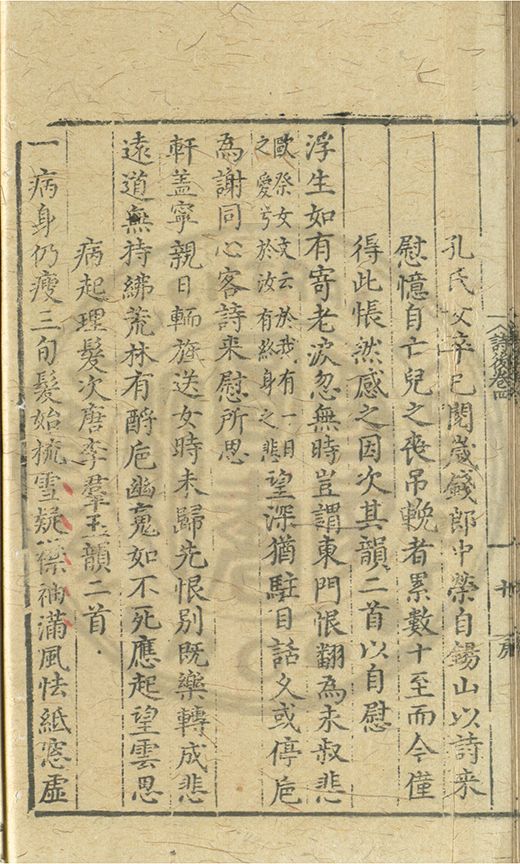 詩後卷四
孔氏女卒已閱嵗錢郎中榮自錫山以詩来
慰憶自亡兒之喪吊輓者累數十至而今僅
得此悵然感之因次其韻二首以自慰
浮生如有寄老淚忽無時豈謂東門恨翻為永叔悲
歐祭女文云於我有一日
之愛兮於汝有終身之悲
望深猶駐目話久或停巵
為謝同心客詩来慰所思
軒盖寧親日輀旐送女時未歸先恨別既樂轉成悲
遠道無持紼荒林有酹巵幽䰟如不死應起望雲思
病起理髮次唐李羣玉韻二首
一病身仍瘦三旬髮始梳雪疑襟袖滿風怯紙窓虛